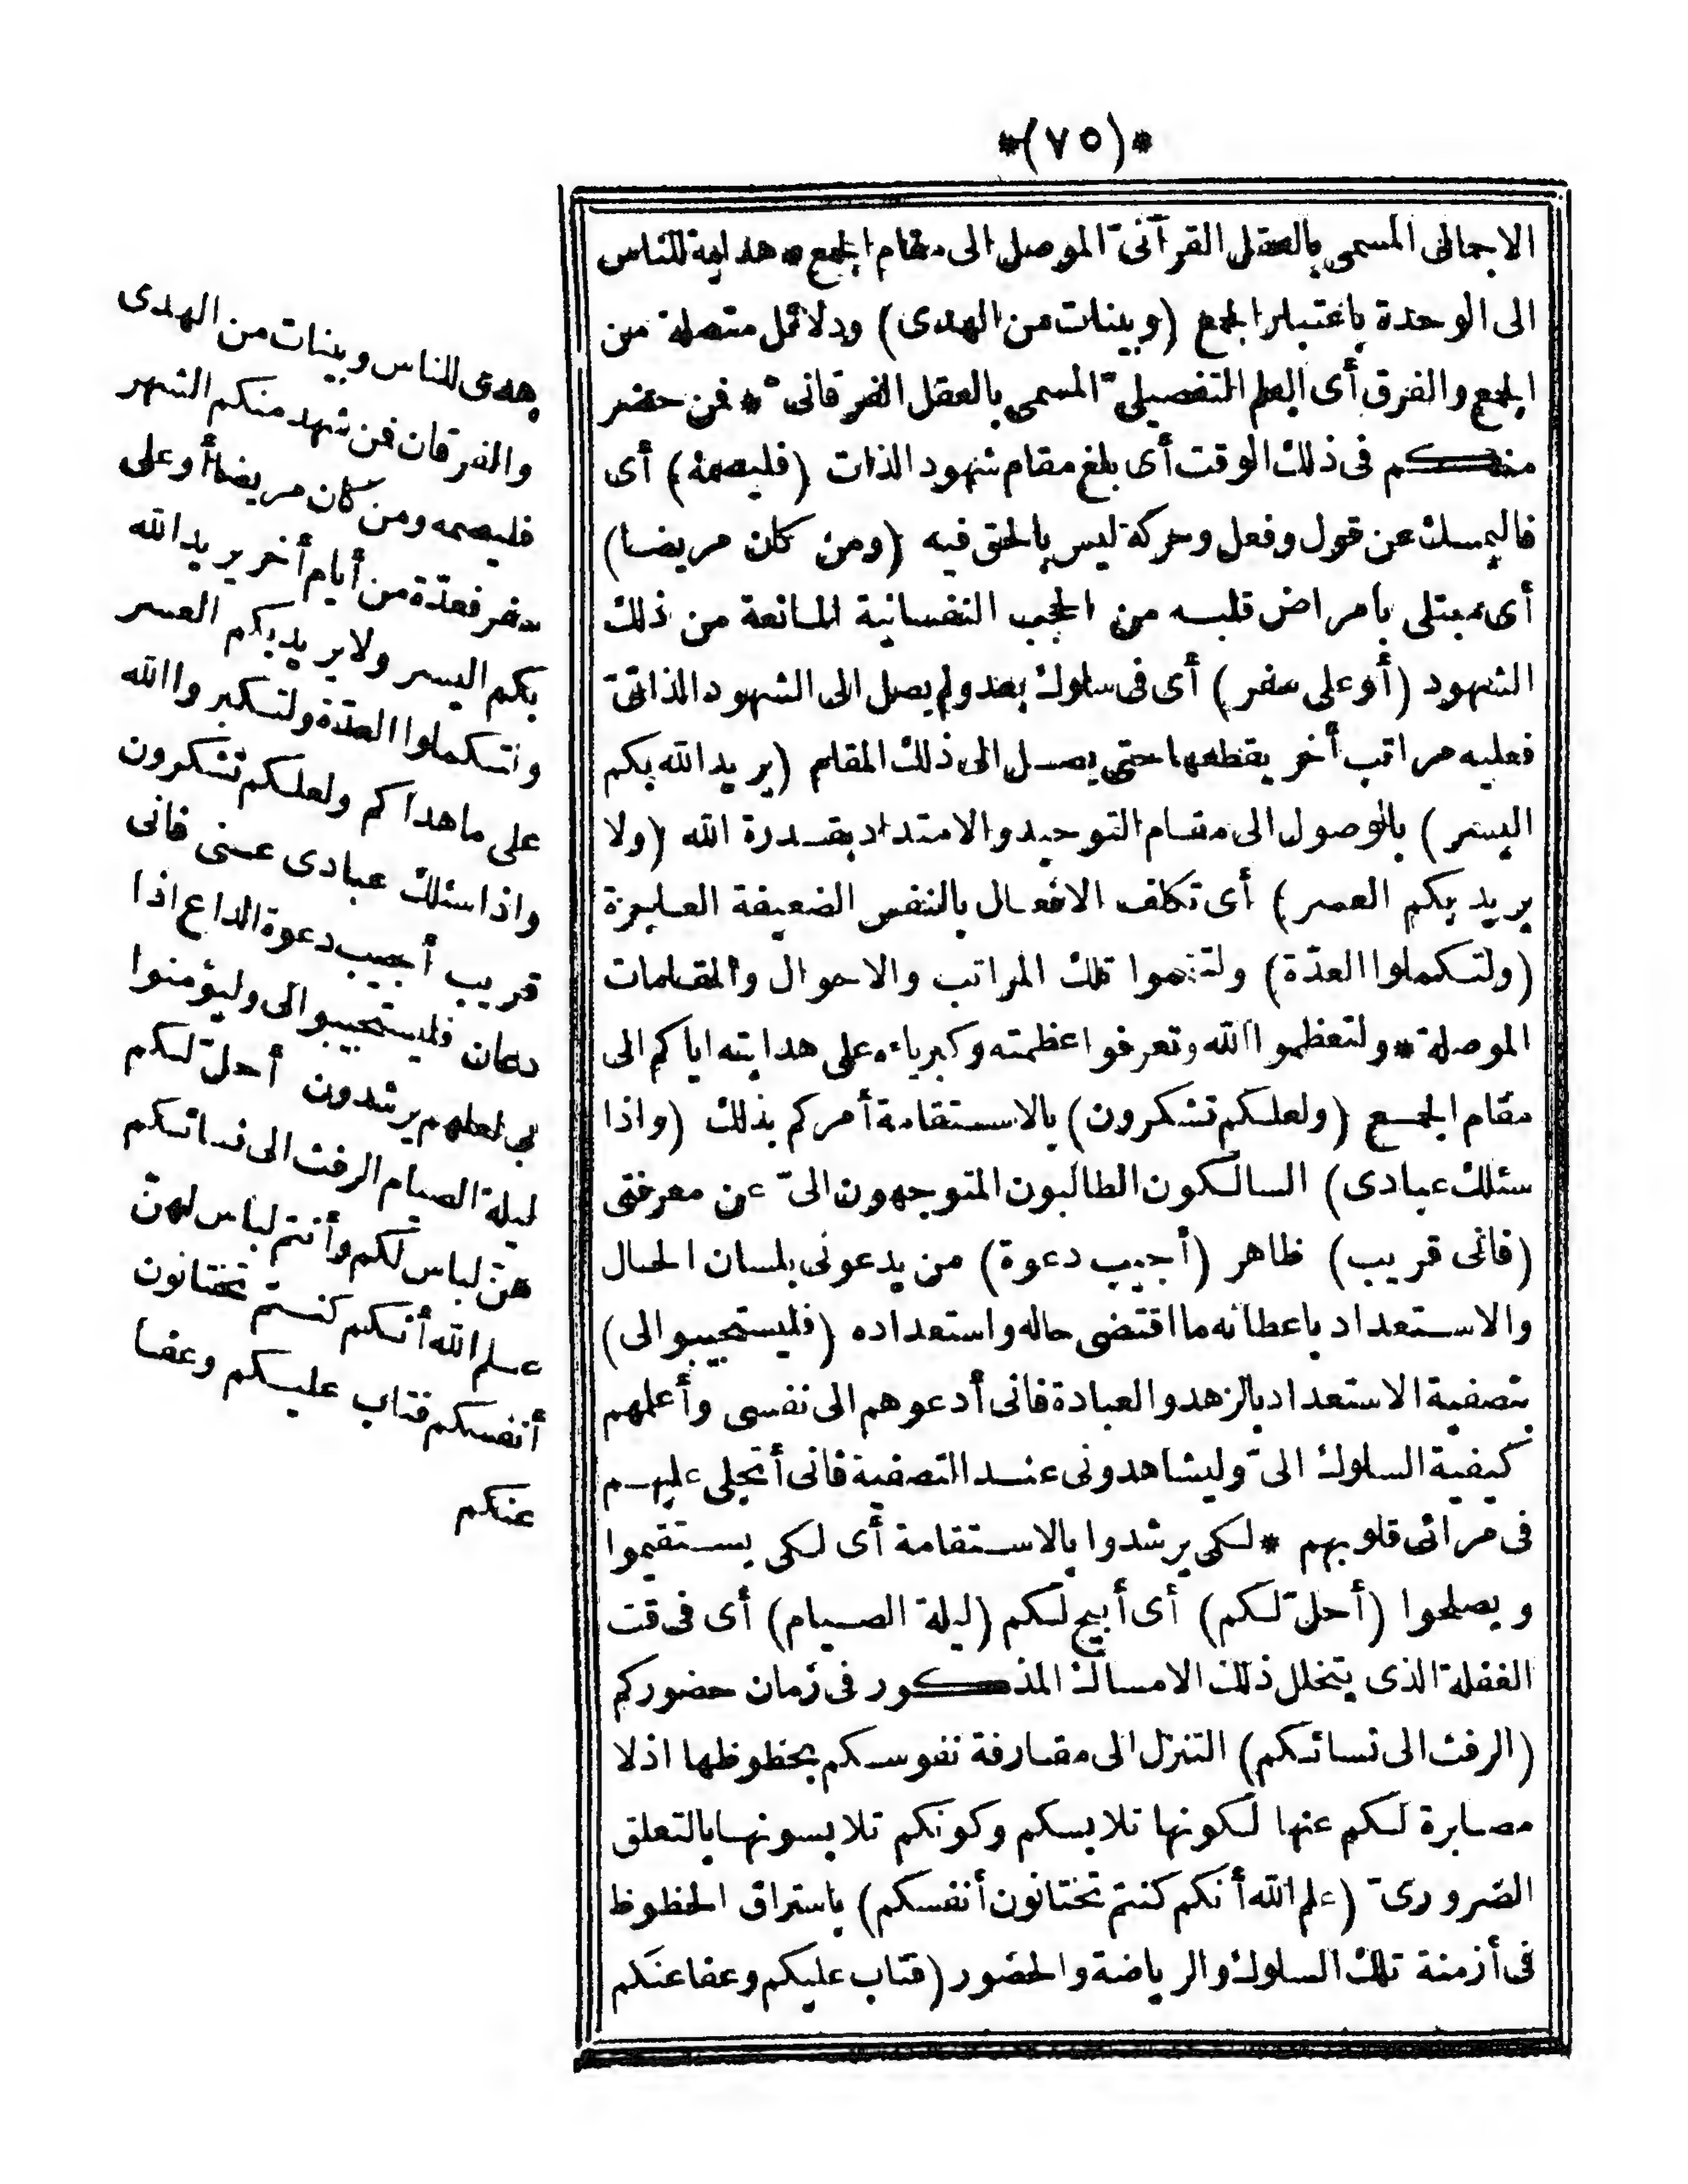 *(٧٥)*
الاجمالى المسمى بالعقل القرآنىّ الموصل الى مقام الجمع * هداية للناس
الى الوحدة باعتبار الجمع (وبينات من الهدى) ودلائل متصلة من
الجمع والفرق أى العلم التفصيلىّ المسمى بالعقل الفرقانىّ * فمن حضر
منكم فى ذلك الوقت أى بلغ مقام شهود الذات (فليصمه) أى
فاليمسك عن قول وفعل وحركة ليس بالحق فيه (ومن كان مريضا)
أى مبتلى بامراض قلبه من الحجب النفسانية المانعة من ذلك
الشهود (أو على سفر) أى فى سلوك بعد ولم يصل الى الشهود الذاتىّ
فعليه مراتب أخر يقطعها حتى يصل الى ذلك المقام (يريد الله بكم
اليسر) بالوصول الى مقام التوحيد والامتداد بقدرة الله (ولا
يريد بكم العسر) أى تكلف الافعال بالنفس الضعيفة العاجزة
(ولتكملوا العدّة) ولتتموا تلك المراتب والاحوال والمقامات
الموصلة * ولتعظموا الله وتعرفوا عظمته وكبرياءه على هدايته اياكم الى
مقام الجمع (ولعلكم تشكرون) بالاستقامة أمركم بذلك (واذا
سئلك عبادى) السالكون الطالبون المتوجهون الىّ عن معرفتى
(فانى قريب) ظاهر (أجيب دعوة) من يدعونى بلسان الحال
والاستعداد باعطائه ما اقتضى حاله واستعداده (فليستجيبوا لى)
بتصفية الاستعداد بالزهد والعبادة فانى أدعوهم الى نفسى وأعلمهم
كيفية السلوك الىّ وليشاهدونى عند التصفية فانى أتجلى عليهم
فى مرائى قلوبهم * لكى يرشدوا بالاستقامة أى لكى يستقيموا
ويصلحوا (أحلّ لكم) أى أبيح لكم (ليلة الصيام) أى فى قت
الغفلة الذى يتخلل ذلك الامساك المذكور فى زمان حضوركم
(الرفث الى نسائكم) التنزل الى مقارفة نفوسكم بحظوظها اذلا
مصابرة لكم عنها لكونها تلابسكم وكونكم تلابسونها بالتعلق
الضرورىّ (علم الله أنكم كنتم تختانون أنفسكم) باستراق الحظوظ
فى أزمنة تلك السلوك والرياضة والحضور (فتاب عليكم وعفا عنكم
هدى للناس وبينات من الهدى
والفرقان فمن شهد منكم الشهر
فليصمه ومن كان مريضا أو على
سفر فعدّة من أيام أخر يريد الله
بكم اليسر ولا يريد بكم العسر
ولتكملوا العدّة ولتكبروا الله
على ما هداكم ولعلكم تشكرون
واذا سئلك عبادى عنى فانى
قريب أجيب دعوة الداع اذا
دعان فليستجيبوا لى وليؤمنوا
بى لعلهم يرشدون أحلّ لكم
ليلة الصيام الرفث الى نسائكم
هنّ لباس لكم وأنتم لباس لهنّ
علم الله أنكم كنتم تختانون
أنفسكم فتاب عليكم وعفا
عنكم